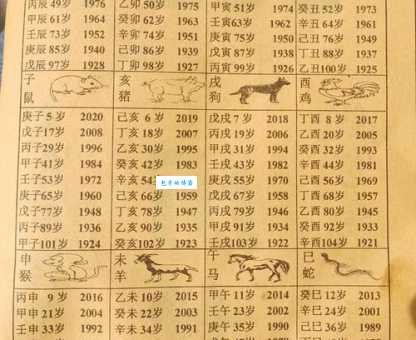 丙辰49岁 1976 乙卯50岁 1975 甲寅51岁 1974 癸丑52岁 1973
甲辰61岁 1964 癸卯62岁 1963 壬寅63岁 1962 辛丑64岁 1961
壬辰73岁 1952 辛卯74岁 1951 庚寅75岁 1950 己丑76岁 1949
庚辰85岁 1940 己卯86岁 1939 戊寅87岁 1938 丁丑88岁 1937
戊辰97岁 1928 丁卯98岁 1927 丙寅99岁 1926 乙丑100岁 1925
子鼠 亥猪 戌狗 酉鸡
庚子5岁 2020 己亥6岁 2019 戊戌7岁 2018 丁酉8岁 2017
戊子17岁 2008 丁亥18岁 2007 丙戌19岁 2006 乙酉20岁 2005
丙子29岁 1996 乙亥30岁 1995 甲戌31岁 1994 癸酉32岁 1993
甲子41岁 1984 癸亥42岁 1983 壬戌43岁 1982 辛酉44岁 1981
壬子53岁 1972 辛亥54 庚戌55岁 1970 己酉56岁 1969
庚子65岁 1960 己亥66岁 1959 戊戌67岁 1958 丁酉68岁 1957
戊子77岁 1948 丁亥78岁 1947 丙戌79岁 1946 乙酉80岁 1945
丙子89岁 1936 乙亥90岁 1935 甲戌91岁 1934 癸酉92岁 1933
甲子101岁 1924 癸亥102岁 1923 壬戌103岁 1922 辛酉104岁 1921
申猴 未羊 午马 巳蛇
丙申9岁 2016 乙未10岁 2015 甲午11岁 2014 癸巳12岁 2013
甲申21岁 2004 癸未22岁 2003 壬午23岁 2002 辛巳24岁 2001
壬申33岁 1992 辛未34岁 1991 庚午35岁 1990 己巳36岁 1989